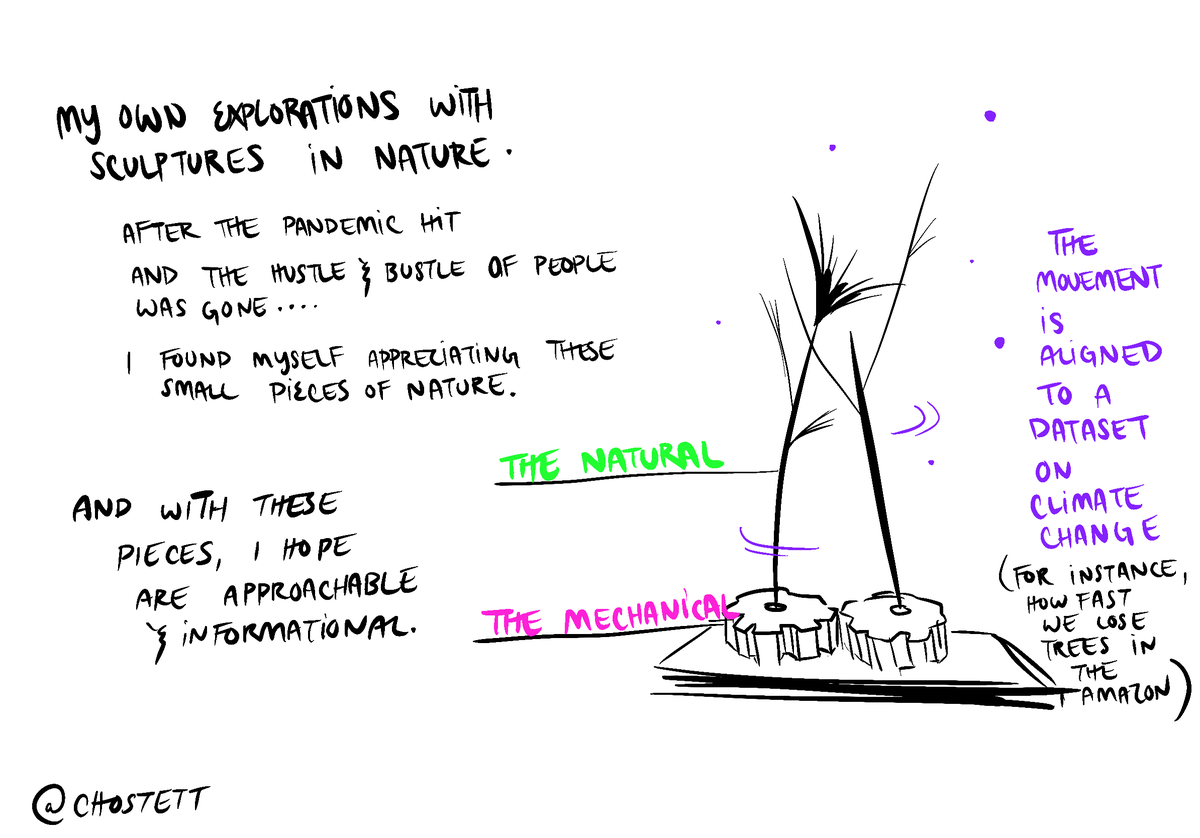 MY OWN EXPLORATIONS WITH
SCULPTURES IN NATURE.
AFTER THE PANDEMIC HIT
AND THE HUSTLE & BUSTLE OF PEOPLE
WAS GONE....
I FOUND MYSELF APPRECIATING THESE
SMALL PIECES OF NATURE.
AND WITH THESE
PIECES, I HOPE
ARE APPROACHABLE
& INFORMATIONAL.
THE NATURAL
THE MECHANICAL
THE
MOVEMENT
IS
ALIGNED
TO A
DATASET
ON
CLIMATE
CHANGE
(FOR INSTANCE,
HOW FAST
WE LOSE
TREES IN
THE
AMAZON)
@CHOSTETT